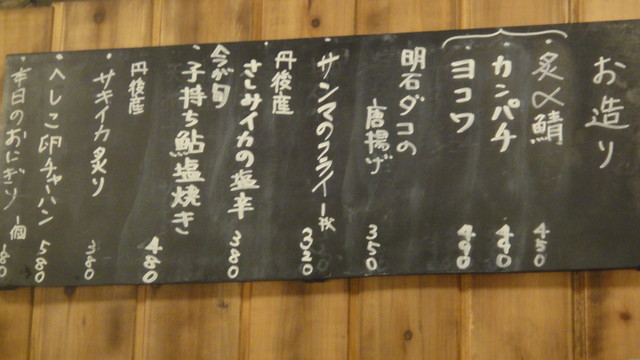 お造り
・炙〆鯖 450
・カンパチ 440
・ヨコワ 490
明石ダコの
唐揚げ 350
・サンマのフライ一枚 320
丹後産
さしみイカの塩辛 380
今が旬
・子持ち鮎塩焼き 480
丹後産
・サキイカ炙り 380
・へしこ卵チャーハン 580
・本日のおにぎり一個 180